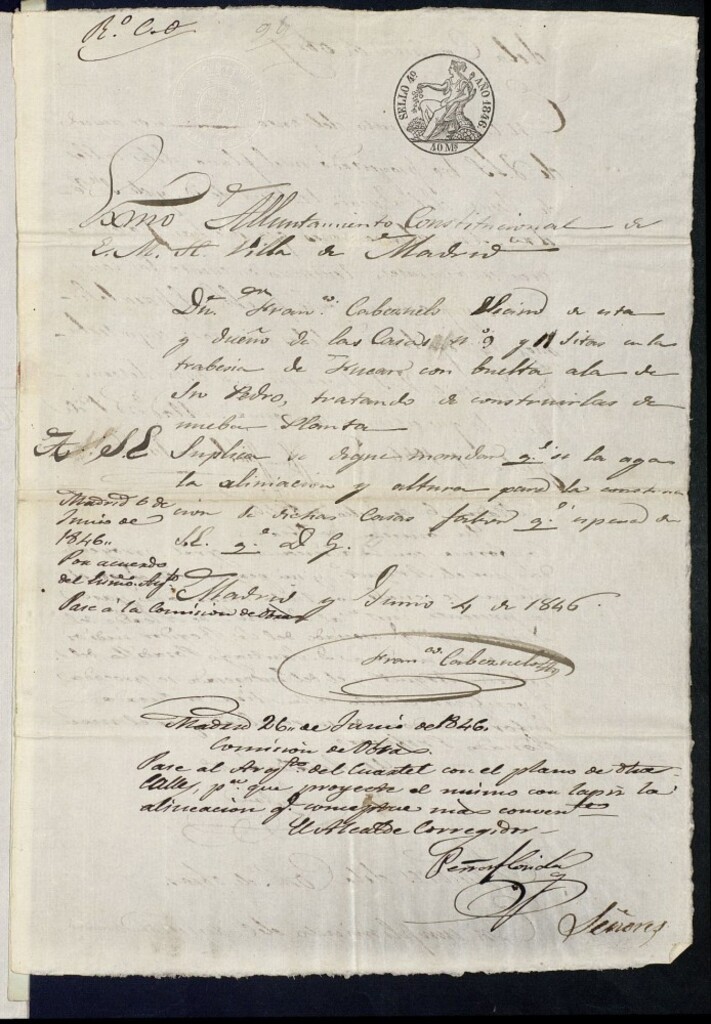 R.º C.º
SELLO 4º AÑO 1846.
40 Ms
Exmo Alluntamiento Constitucional de
E. M. H. Villa de Madrid
Dn. Franco. Cabezuelo Vecino de esta
y dueño de las Casas nº 9 y 11 sitas en la
trabesia de Fucar con buelta ala de
Sn Pedro, tratando de construirlas de
nueba Planta
A S.E Suplica se digne mandar q.e se la aga
la aliniacion y altura para la construc
cion de dichas Casas fabor q.e espera de
S.E. q.e D. G.
Madrid y Junio 4 de 1846.
Franco. Cabezuelo
Madrid 6 de
Junio de
1846..
Por acuerdo
del Exmo. Ayto.
Pase á la Comision de Obras
Madrid 26,, de Junio de 1846.
Comision de Obras
Pase al Arqto. del Cuartel con el plano de dha
Calle, pa. que proyecte el mismo con lapiz la
alineacion q.e conceptue mas convente
El Alcalde Corregidor
Peñaflorida
Señores